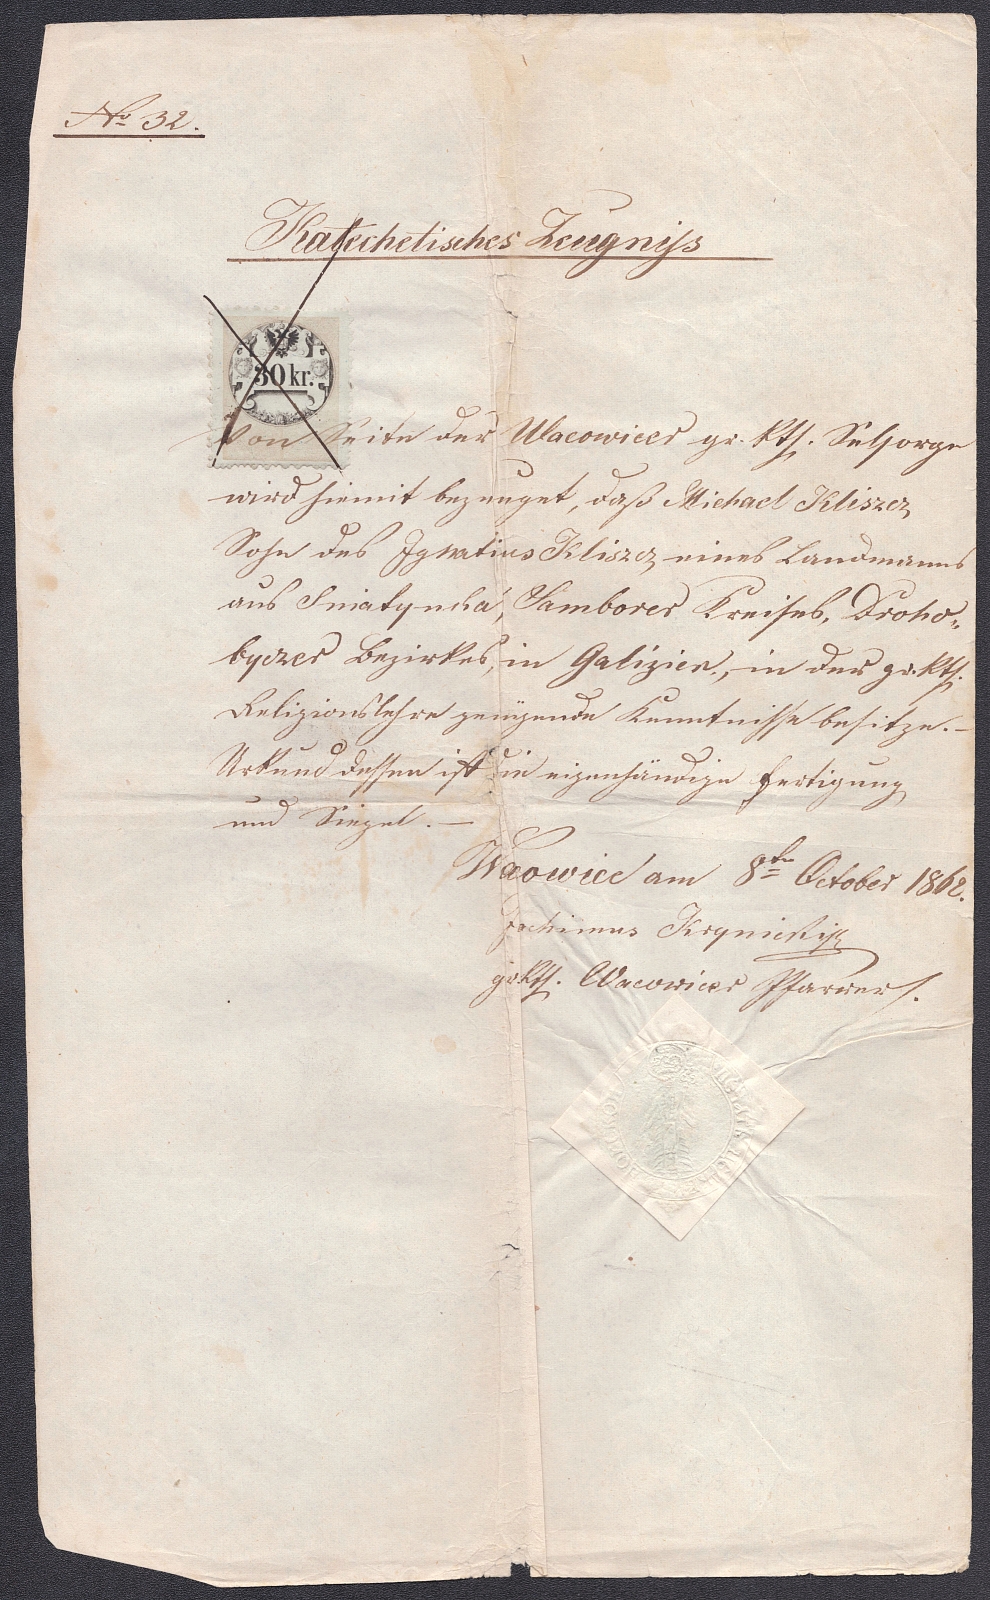 No 32.
Katechetisches Zeugniss
30 kr.
Von Seite der Wacowicer gr. kth. Selsorge
wird hiemit bezeuget, daß Michael Kliszcz
Sohn des Ignatius Kliszcz eines Landmanns
aus Sniatyncha, Samborer Kreises, Droho-
byczer Bezirkes, in Galizien, in der gr. kth.
Religionslehre genügende Kenntnisse besitze.—
Urkund dessen ist die eigenhändige Fertigung
und Siegel.—
Wacowice am 8ten October 1862.
Krynicki
gr kth. Wacowicer Pfarrer.